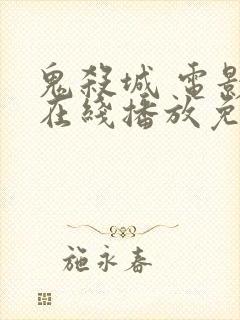 鬼殺城 電影
在綫播放免
施永春